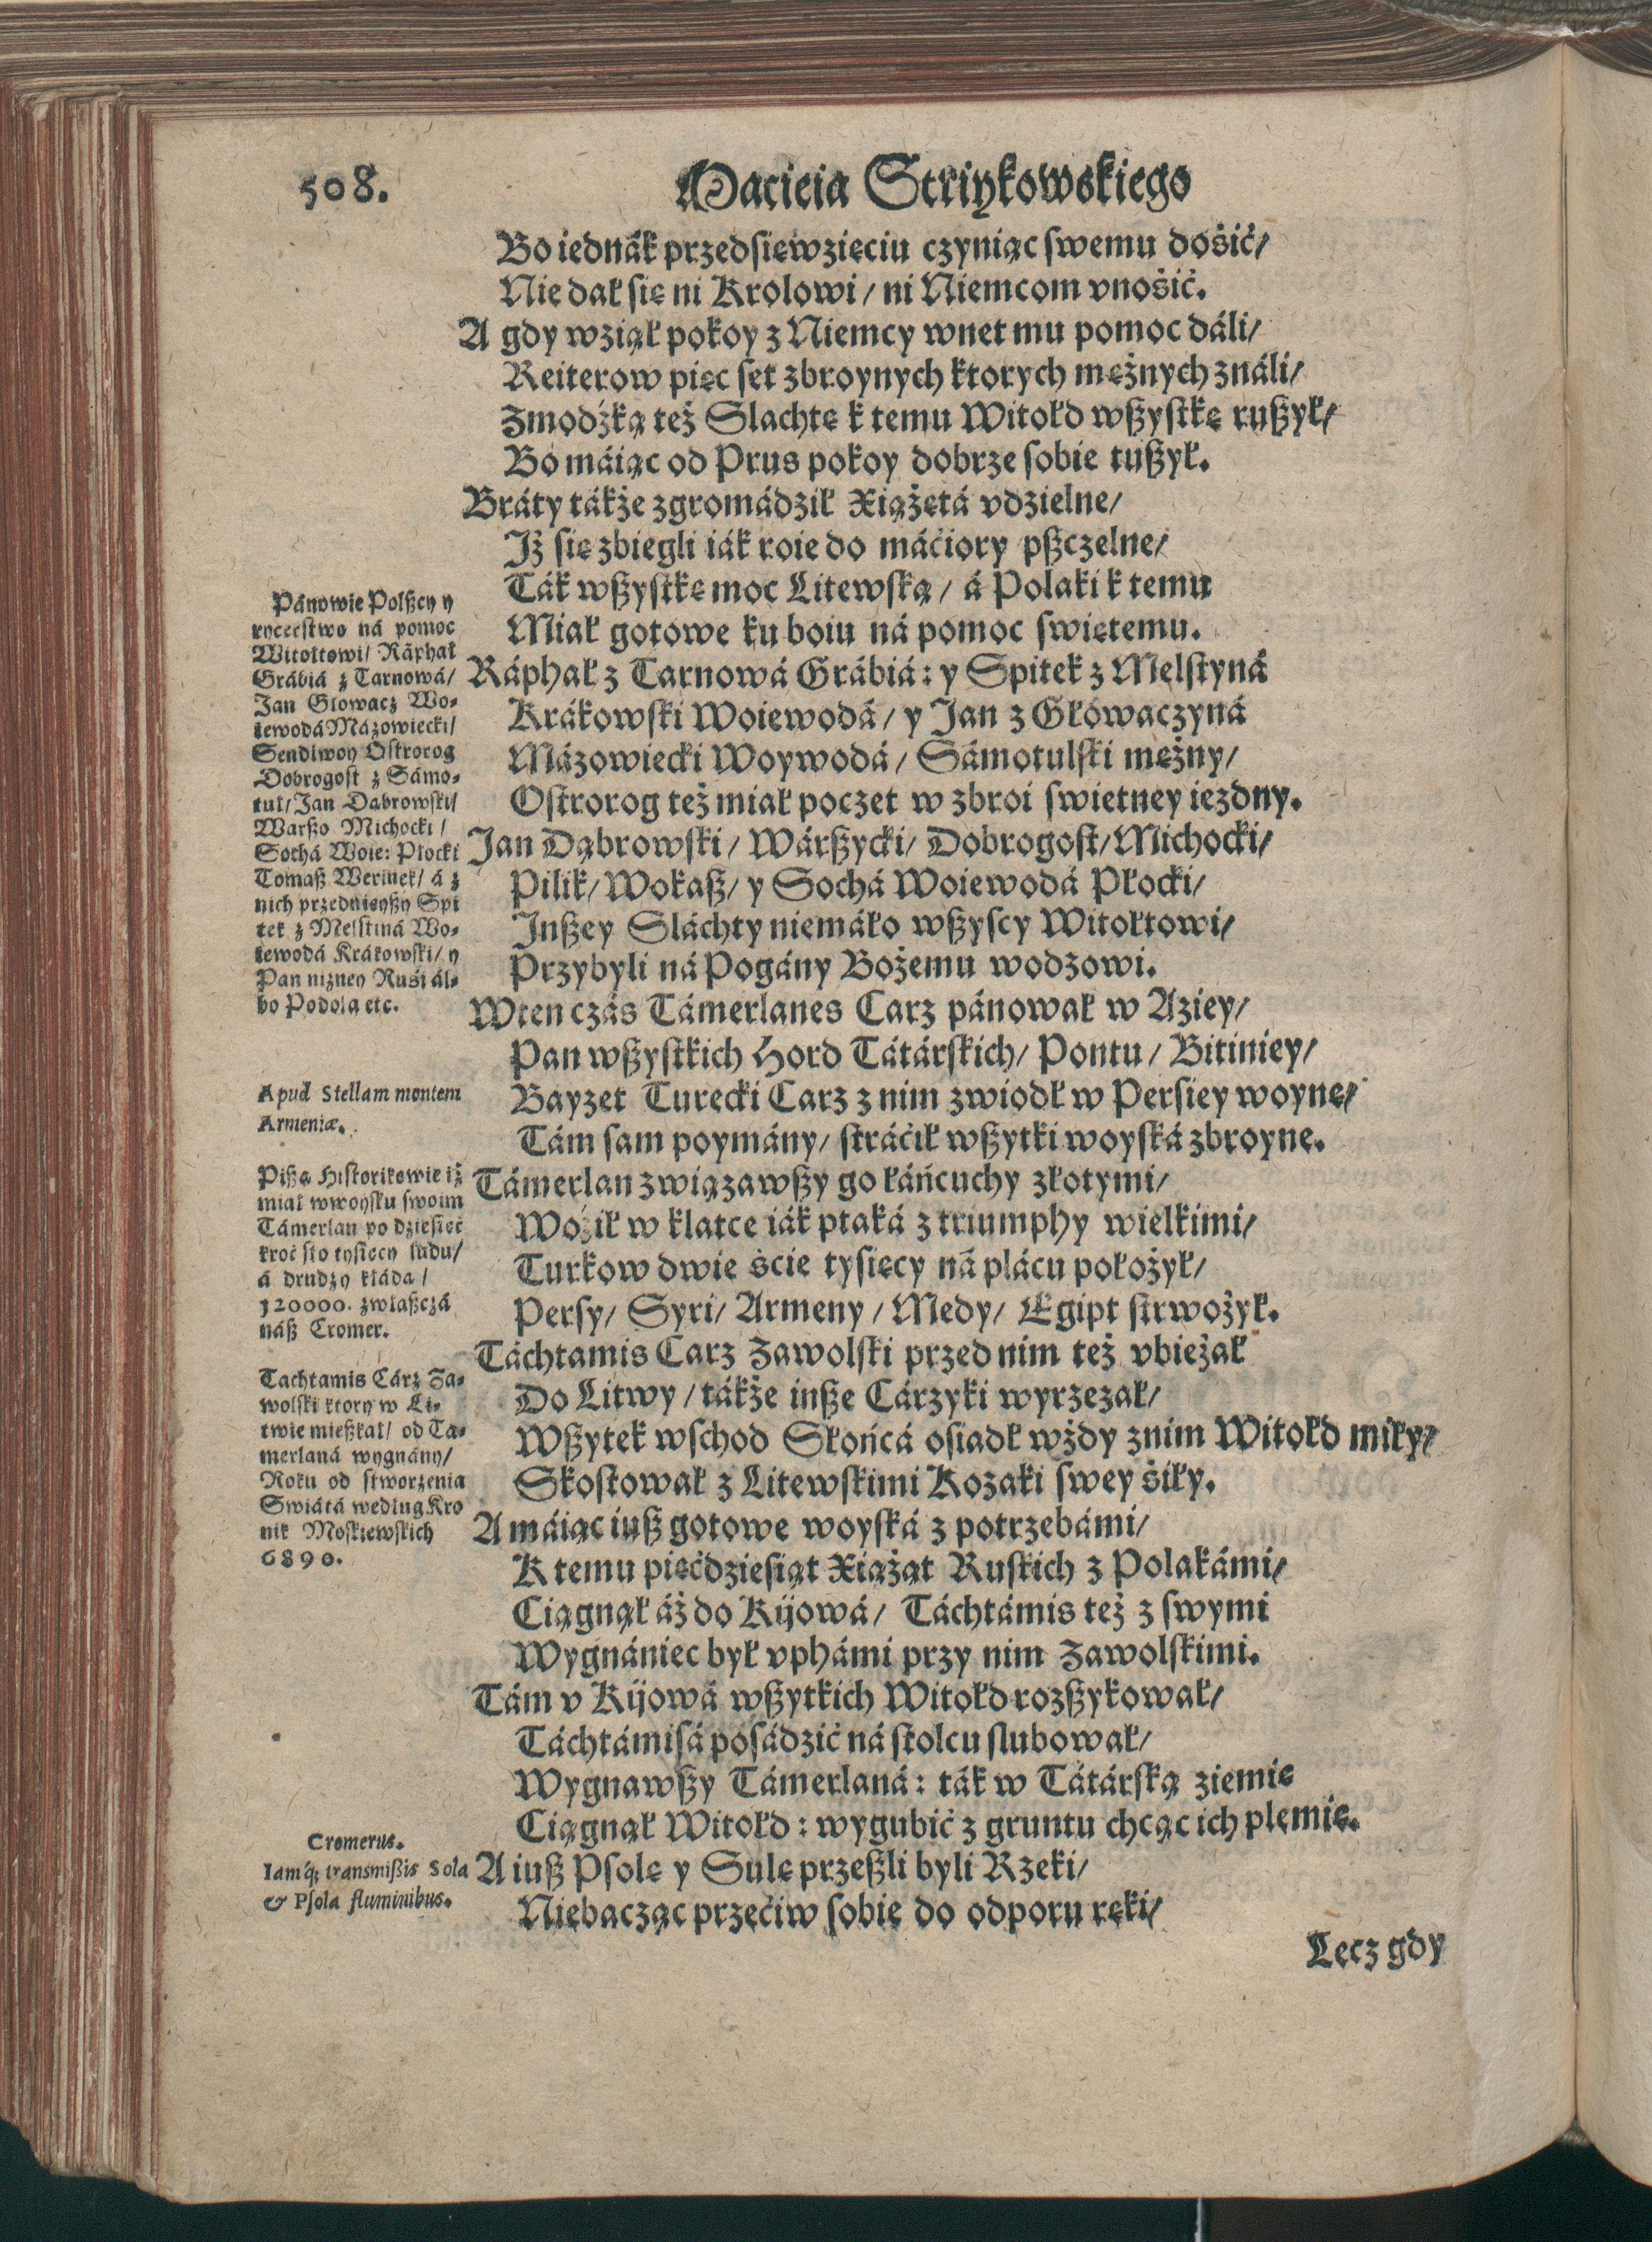 508.
Macieia Striykowskiego
Bo iednák przedsięwzięciu czyniąc swemu dosić/
Nie dał się ni Krolowi / ni Niemcom vnosić.
A gdy wziął pokoy z Niemcy wnet mu pomoc dáli/
Reiterow pięc set zbroynych ktorych mężnych ználi/
Zmodźką też Slachtę k temu Witołd wßystkę rußył/
Bo máiąc od Prus pokoy dobrze sobie tußył.
Bráty tákże zgromádził Xiążętá vdzielne/
Jż się zbiegli iák roie do máćiory pßczelne/
Ták wßystkę moc Litewską / á Polaki k temu
Miał gotowe ku boiu ná pomoc swiętemu.
Ráphał z Tarnowá Grábiá: y Spitek z Melstyná
Krákowski Woiewodá / y Jan z Głowaczyná
Mázowiecki Woywodá / Sámotulski mężny/
Ostrorog też miał poczet w zbroi swietney iezdny.
Jan Dąbrowski / Wárßycki/ Dobrogost/ Michocki/
Pilik/ Wokaß/ y Sochá Woiewodá Płocki/
Jnßey Sláchty niemáło wßyscy Witołtowi/
Przybyli ná Pogány Bożemu wodzowi.
Wten czás Támerlanes Carz pánował w Aziey/
Pan wßystkich Hord Tátárskich/ Pontu / Bitiniey/
Bayzet Turecki Carz z nim zwiodł w Persiey woynę/
Tám sam poymány/ stráćił wßytki woyská zbroyne.
Támerlan związawßy go łáńcuchy złotymi/
Woźił w klatce iák ptaká z triumphy wielkimi/
Turkow dwie ście tysięcy ná plácu położył/
Persy/ Syri/ Armeny / Medy/ Egipt strwożył.
Táchtamis Carz Zawolski przed nim też vbieżał
Do Litwy / tákże inße Cárzyki wyrzezał/
Wßytek wschod Słońcá osiadł wżdy znim Witołd miły/
Skosztował z Litewskimi Kozaki swey śiły.
A máiąc iuß gotowe woyská z potrzebámi/
K temu pięćdziesiąt Xiążąt Ruskich z Polakámi/
Ciągnął áż do Kijowá/ Táchtámis też z swymi
Wygnániec był vphámi przy nim Zawolskimi.
Tám v Kijowá wßytkich Witołd rozßykował/
Táchtámisá posádzić ná stolcu slubował/
Wygnawßy Támerlaná: ták w Tátárską ziemię
Ciągnął Witołd: wygubić z gruntu chcąc ich plemię.
A iuß Psolę y Sulę przeßli byli Rzeki/
Niebacząc przećiw sobie do odporu ręki/
Lecz gdy
Pánowie Polßcy y
rycerstwo ná pomoc
Witołtowi/ Ráphał
Grábiá z Tarnowá/
Jan Głowacz Wo-
iewodá Mázowiecki/
Sendiwoy Ostrorog
Dobrogost z Sámo-
tuł/ Jan Dąbrowski/
Warßo Michocki /
Sochá Woie: Płocki
Tomaß Werinek/ á z
nich przednieyßy Spi
tek z Melstiná Wo-
iewodá Krákowski/ y
Pan nizney Ruśi ál-
bo Podola etc.
Apud Stellam montem
Armeniæ.
Pißą Historikowie iż
miał wwoysku swoim
Támerlan po dziesięć
kroć sto tysięcy ludu/
á drudzy kłádą /
120000. zwłaßczá
náß Cromer.
Tachtamis Cárz Za-
wolski ktory w Li-
twie mießkał/ od Ta-
merlaná wygnány/
Roku od stworzenia
Swiátá według Kro
nik Moskiewskich
6890.
Cromerus.
Iamq; transmißis Sola
& Psola fluminibus.